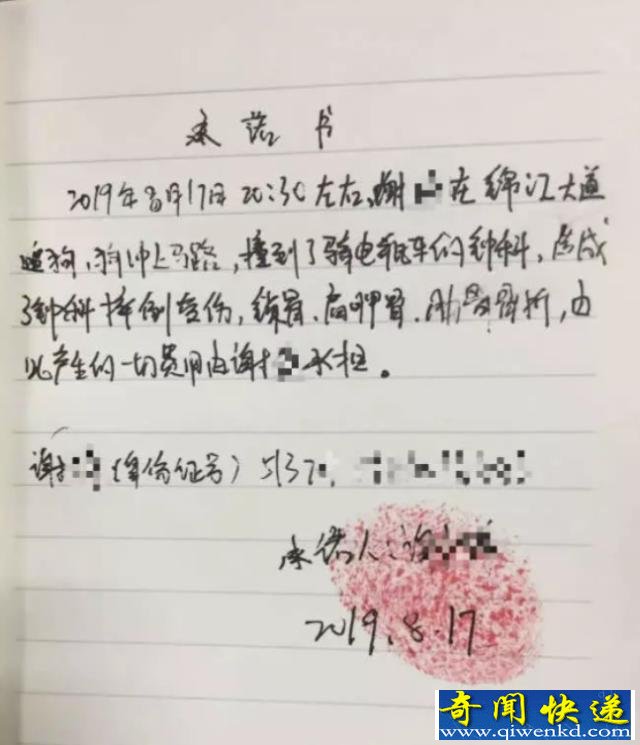 承诺书
2019年8月17日 20:30左右,谢 在锦江大道
遛狗,狗冲上马路,撞到了骑电瓶车的钟科,造成
了钟科摔倒受伤,锁骨、肩胛骨、肋骨骨折,由
此产生的一切费用由谢 承担。
谢 (身份证号)5137
承诺人:谢
2019.8.17
奇闻快递
www.qiwenkd.com